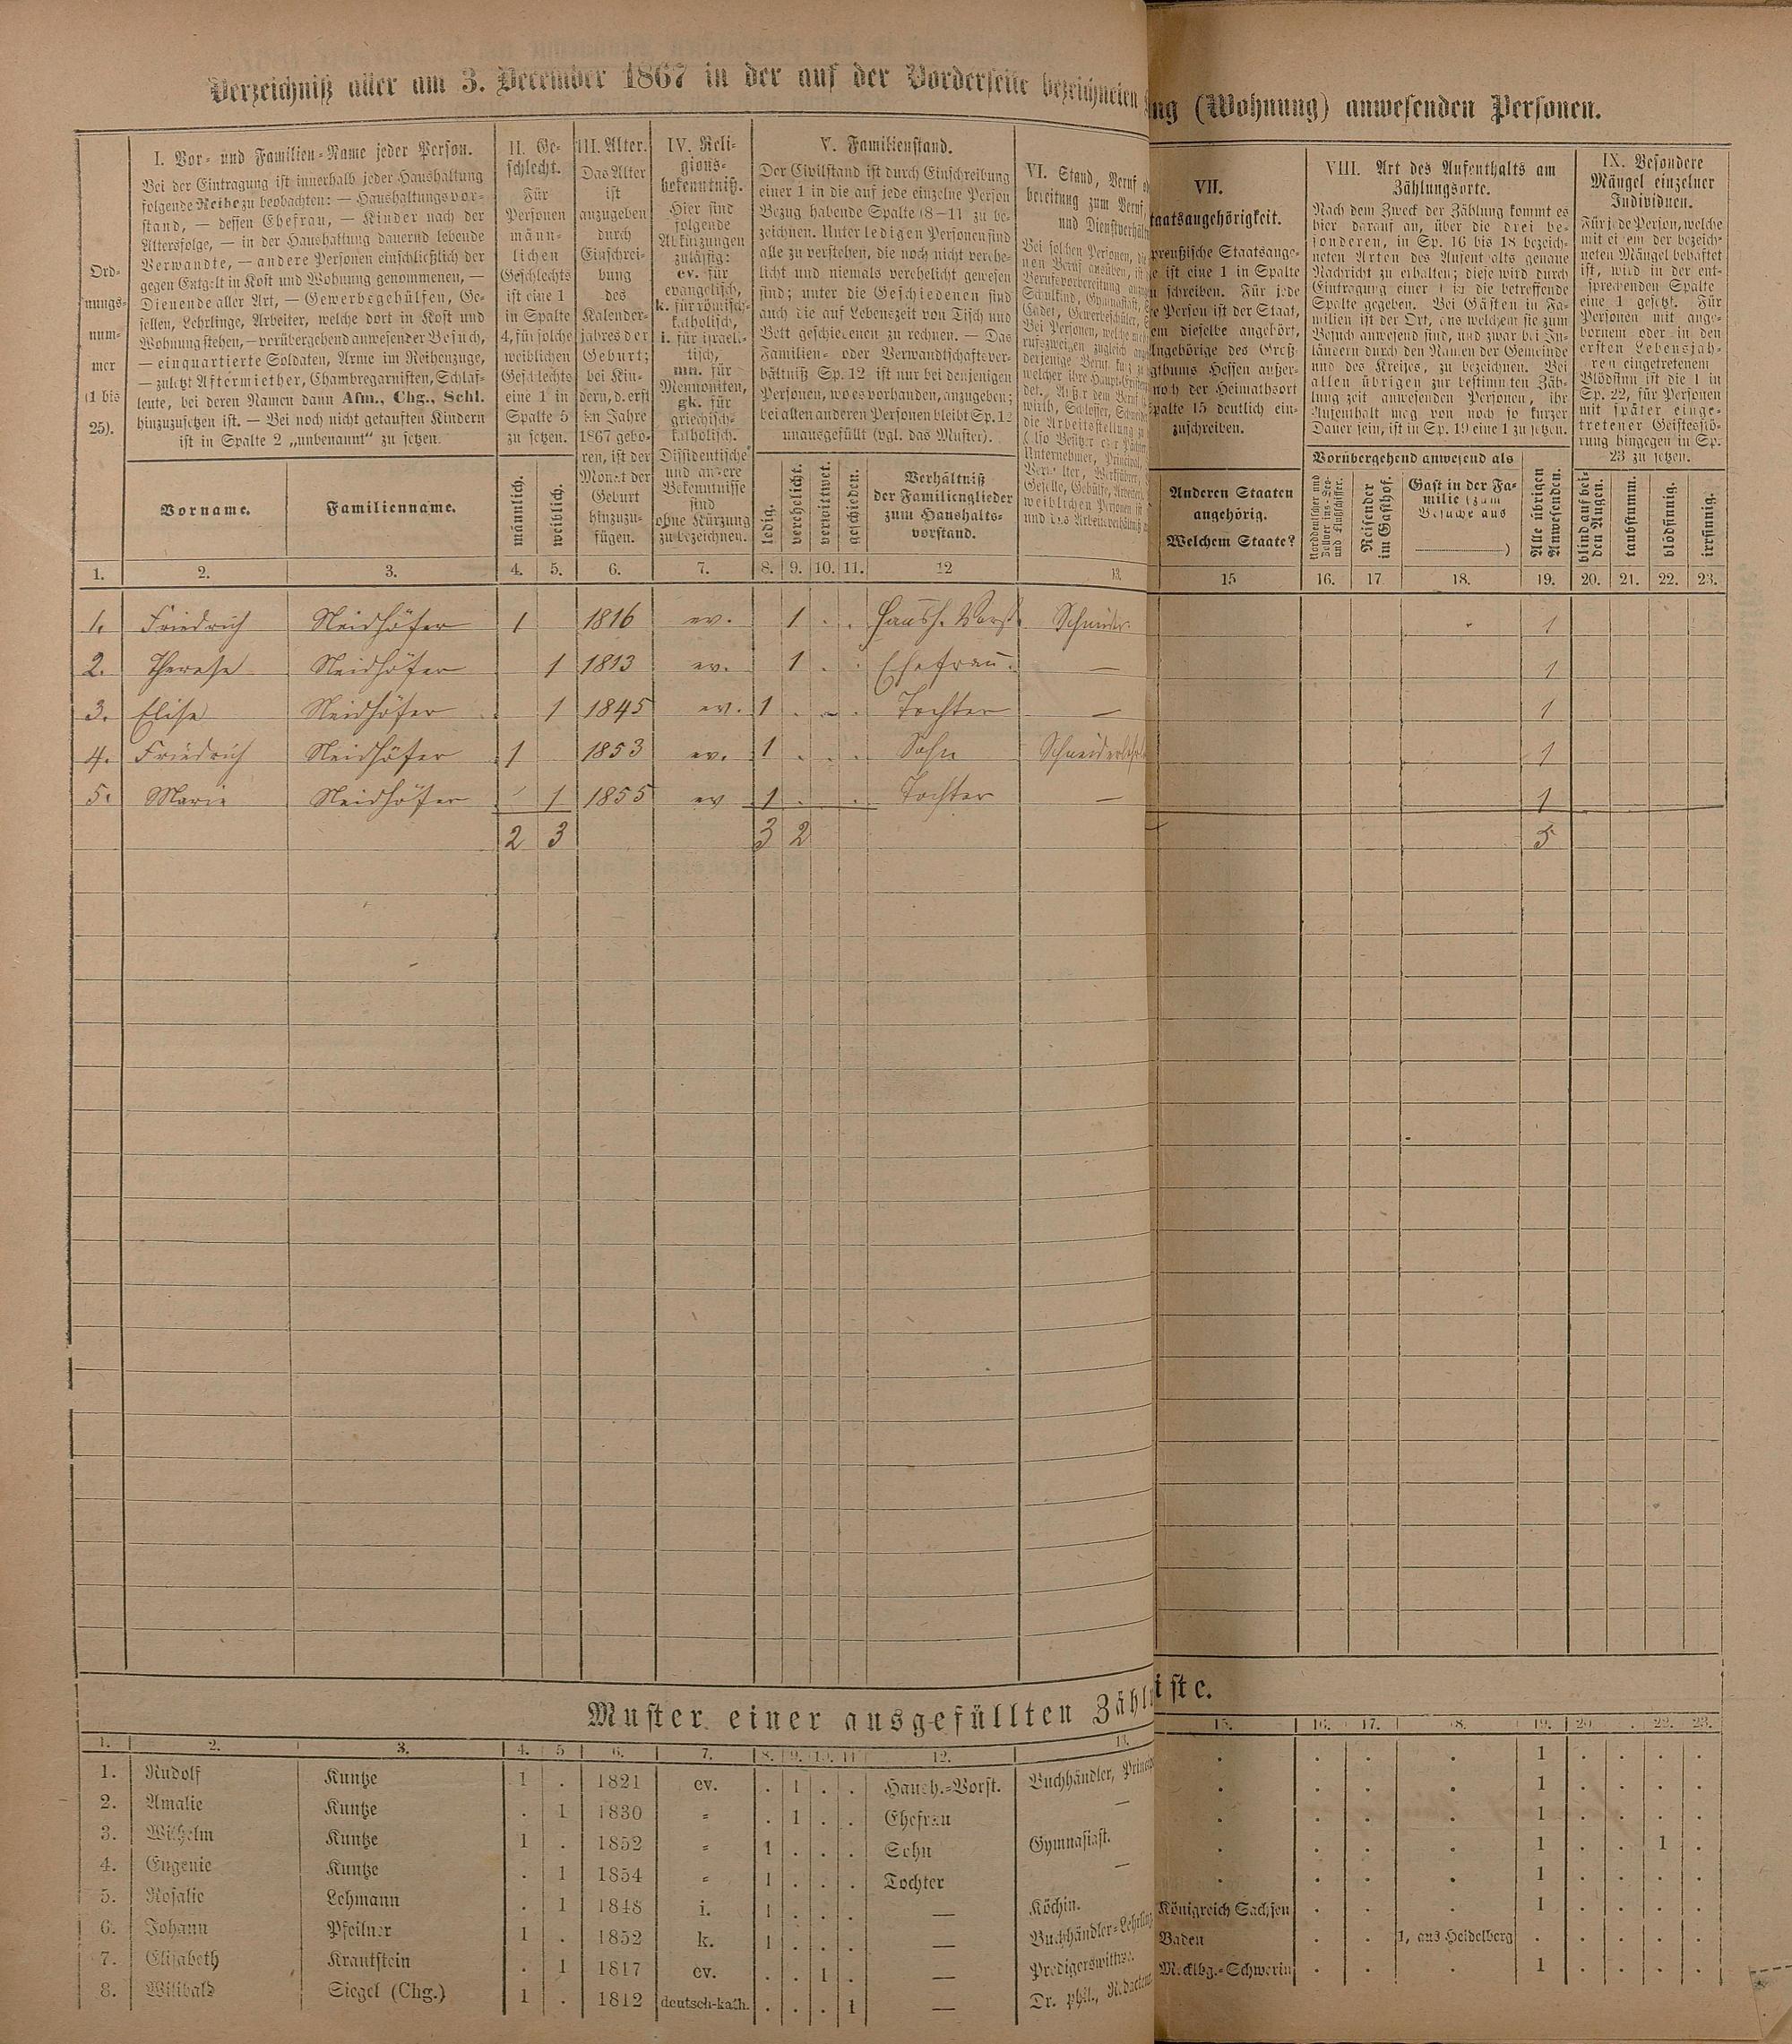 Verzeichniß aller am 3. December 1867 in der auf der Vorderseite bezeichneten
ng (Wohnung) anwesenden Personen.
Ord-
nungs-
num-
mer
(1 bis
25).
I. Vor- und Familien-Name jeder Person.
Bei der Eintragung ist innerhalb jeder Haushaltung
folgende Reihe zu beobachten: — Haushaltungsvor-
stand, — dessen Ehefrau, — Kinder nach der
Altersfolge, — in der Haushaltung dauernd lebende
Verwandte, — andere Personen einschließlich der
gegen Entgelt in Kost und Wohnung genommenen, —
Dienende aller Art, — Gewerbsgehülfen, Ge-
sellen, Lehrlinge, Arbeiter, welche dort in Kost und
Wohnung stehen, — vorübergehend anwesender Besuch,
— einquartierte Soldaten, Arme im Reihenzuge,
— zuletzt Aftermiether, Chambregarnisten, Schlaf-
leute, bei deren Namen dann Afm., Chg., Schl.
hinzuzusetzen ist. — Bei noch nicht getauften Kindern
ist in Spalte 2 „unbenannt“ zu setzen.
Vorname.
Familienname.
II. Ge-
schlecht.
Für
Personen
männ-
lichen
Geschlechts
ist eine 1
in Spalte
4, für solche
weiblichen
Geschlechts
eine 1 in
Spalte 5
zu setzen.
männlich.
weiblich.
III. Alter.
Das Alter
ist
anzugeben
durch
Einschrei-
bung
des
Kalender-
jahres der
Geburt;
bei Kin-
dern, d. erst
im Jahre
1867 gebo-
ren, ist der
Monat der
Geburt
hinzuzu-
fügen.
IV. Reli-
gions-
bekenntniß.
Hier sind
folgende
Abkürzungen
zulässig:
ev. für
evangelisch,
k. für römisch-
katholisch,
i. für israeli-
tisch,
mn. für
Mennoniten,
gk. für
griechisch-
katholisch.
Dissidentische
und andere
Bekenntnisse
sind
ohne Kürzung
zu bezeichnen.
V. Familienstand.
Der Civilstand ist durch Einschreibung
einer 1 in die auf jede einzelne Person
Bezug habende Spalte (8—11) zu be-
zeichnen. Unter ledigen Personen sind
alle zu verstehen, die noch nicht verehe-
licht und niemals verehelicht gewesen
sind; unter die Geschiedenen sind
auch die auf Lebenszeit von Tisch und
Bett geschiedenen zu rechnen. — Das
Familien- oder Verwandtschaftsver-
hältniß Sp. 12 ist nur bei denjenigen
Personen, wo es vorhanden, anzugeben;
bei allen anderen Personen bleibt Sp. 12
unausgefüllt (vgl. das Muster).
ledig.
verehelicht.
verwittwet.
geschieden.
Verhältniß
der Familienglieder
zum Haushalts-
vorstand.
VI. Stand, Beruf
bereitung zum Beruf,
und Dienstverhält
VII.
taatsangehörigkeit.
preußische Staatsange-
e ist eine 1 in Spalte
n schreiben. Für jede
e Person ist der Staat,
em dieselbe angehört,
Angehörige des Groß-
gthums Hessen außer-
noch der Heimathsort
palte 15 deutlich ein-
zuschreiben.
Anderen Staaten
angehörig.
Welchem Staate?
VIII. Art des Aufenthalts am
Zählungsorte.
Nach dem Zweck der Zählung kommt es
hier darauf an, über die drei be-
sonderen, in Sp. 16 bis 18 bezeich-
neten Arten des Aufenthalts genaue
Nachricht zu erhalten; diese wird durch
Eintragung einer 1 in die betreffende
Spalte gegeben. Bei Gästen in Fa-
milien ist der Ort, aus welchem sie zum
Besuch anwesend sind, und zwar bei In-
ländern durch den Namen der Gemeinde
und des Kreises, zu bezeichnen. Bei
allen übrigen zur bestimmten Zäh-
lungszeit anwesenden Personen, ihr
Aufenthalt mag von noch so kurzer
Dauer sein, ist in Sp. 19 eine 1 zu setzen.
Vorübergehend anwesend als
Norddeutscher und
Zollver.ins-See-
und Flußschiffer.
Reisender
im Gasthof.
Gast in der Fa-
milie (zum
Besuche aus
)
Alle übrigen
Anwesenden.
IX. Besondere
Mängel einzelner
Individuen.
Für jede Person, welche
mit einem der bezeich-
neten Mängel behaftet
ist, wird in der ent-
sprechenden Spalte
eine 1 gesetzt. Für
Personen mit ange-
bornem oder in den
ersten Lebensjah-
ren eingetretenem
Blödsinn ist die 1 in
Sp. 22, für Personen
mit später einge-
tretener Geistesstö-
rung hingegen in Sp.
23 zu setzen.
blind auf bei-
den Augen.
taubstumm.
blödsinnig.
irrsinnig.
1. 2. 3. 4. 5. 6. 7. 8. 9. 10. 11. 12 13. 15 16. 17 18. 19. 20. 21. 22. 23.
1. Friedrich Neidhöfer 1 1816 ev. 1 . . Haush. Vorst. Schneider. 1
2. Therese Neidhöfer 1 1813 ev. 1 . . Ehefrau. — 1
3. Elise Neidhöfer 1 1845 ev. 1 . . . Tochter — 1
4. Friedrich Neidhöfer 1 1853 ev. 1 . . . Sohn Schneiderlehrl 1
5. Marie Neidhöfer 1 1855 ev 1 . . Tochter — 1
2 3 3 2 5
Muster einer ausgefüllten Zähl
iste.
1. 2. 3. 4. 5 6. 7. 8. 9. 10. 11 12. 13. 15. 16. 17. 18. 19. 20 . 22. 23.
1. Rudolf Kuntze 1 . 1821 ev. . 1 . . Haush.-Vorst. Buchhändler, Princip . . . . 1 . . . .
2. Amalie Kuntze . 1 1830 = . 1 . . Ehefrau — . . . . 1 . . . .
3. Wilhelm Kuntze 1 . 1852 = 1 . . . Sohn Gymnasiast. . . . . 1 . . . .
4. Eugenie Kuntze . 1 1854 = 1 . . . Tochter — . . . . 1 . . 1 .
5. Rosalie Lehmann . 1 1848 i. 1 . . . — Köchin. . . . . 1 . . . .
6. Johann Pfeilner 1 . 1852 k. 1 . . . — Buchhändler-Lehrling Königreich Sachsen . . . 1 . . . .
7. Elisabeth Krautstein . 1 1817 ev. . . 1 . — Predigerswittwe. Baden . . 1, aus Heidelberg . . . . .
8. Wilibald Siegel (Chg.) 1 . 1812 deutsch-kath. . . . 1 — Dr. phil., Redacteur Mecklbg.-Schwerin . . . 1 . . . .